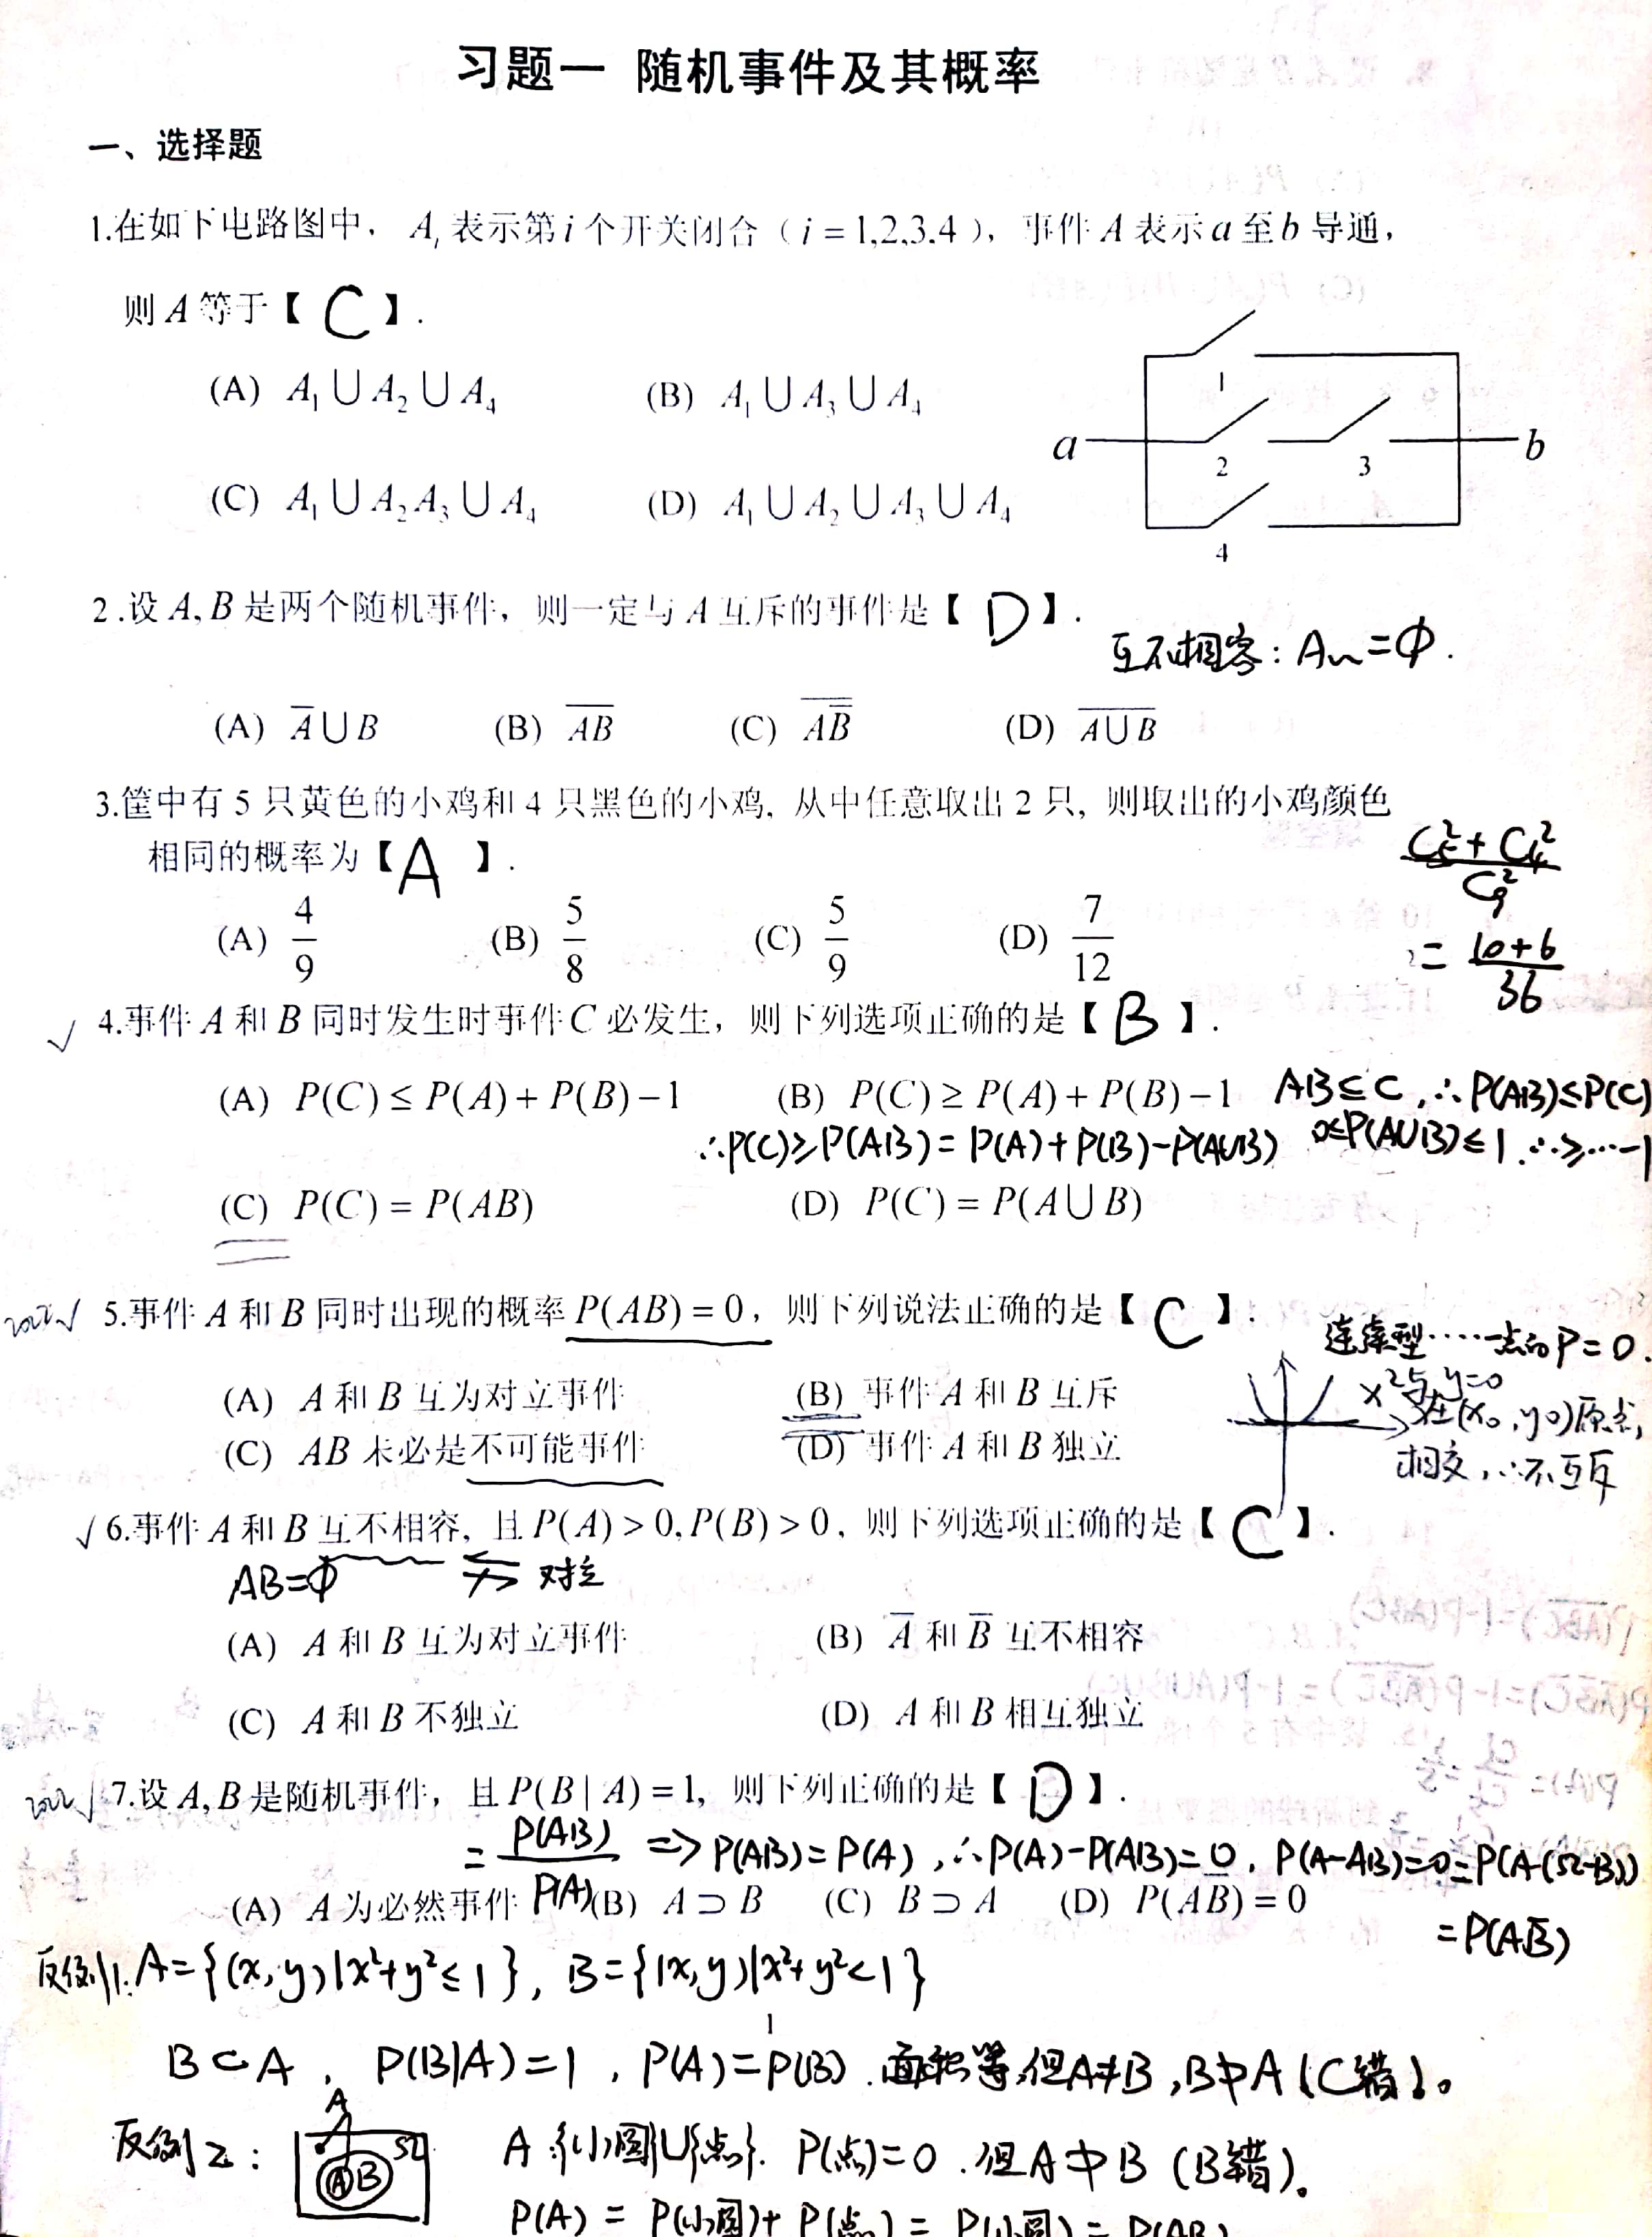 习题一 随机事件及其概率
一、选择题
1.在如下电路图中, Aᵢ 表示第 i 个开关闭合 ( i = 1,2,3.4 ), 事件 A 表示 a 至 b 导通,
则 A 等于【 C 】.
(A) A₁ ∪ A₂ ∪ A₄ (B) A₁ ∪ A₃ ∪ A₄
(C) A₁ ∪ A₂A₃ ∪ A₄ (D) A₁ ∪ A₂ ∪ A₃ ∪ A₄
1
a 2 3 b
4
2.设 A, B 是两个随机事件, 则一定与 A 互斥的事件是【 D 】.
互不相容: A~=Φ.
(A) A̅ ∪ B (B) \overline{AB} (C) \overline{AB̅} (D) \overline{A∪B}
3.筐中有 5 只黄色的小鸡和 4 只黑色的小鸡, 从中任意取出 2 只, 则取出的小鸡颜色
相同的概率为【 A 】.
(C₅²+C₄²)/C₉²
= (10+6)/36
(A) 4/9 (B) 5/8 (C) 5/9 (D) 7/12
√ 4.事件 A 和 B 同时发生时事件 C 必发生, 则下列选项正确的是【 B 】.
(A) P(C) ≤ P(A) + P(B) − 1 (B) P(C) ≥ P(A) + P(B) − 1 AB⊆C, ∴P(AB)≤P(C)
∴P(C)≥P(AB)=P(A)+P(B)-P(A∪B) 0≤P(A∪B)≤1 ∴≥…-1
(C) P(C) = P(AB) (D) P(C) = P(A ∪ B)
√ 5.事件 A 和 B 同时出现的概率 P(AB) = 0, 则下列说法正确的是【 C 】.
连续型……一点的P=0.
(A) A 和 B 互为对立事件 (B) 事件 A 和 B 互斥
x²与y=0
在(x₀,y₀)原点,
(C) AB 未必是不可能事件 (D) 事件 A 和 B 独立
相交,∴不互斥
√ 6.事件 A 和 B 互不相容, 且 P(A) > 0, P(B) > 0, 则下列选项正确的是【 C 】.
AB=Φ 对立
(A) A 和 B 互为对立事件 (B) A̅ 和 B̅ 互不相容
(C) A 和 B 不独立 (D) A 和 B 相互独立
2022√ 7.设 A, B 是随机事件, 且 P(B | A) = 1, 则下列正确的是【 D 】.
= P(AB)/P(A) ⇒ P(AB)=P(A), ∴P(A)-P(AB)=0, P(A-AB)=0=P(A(Ω-B))
=P(AB̅)
(A) A 为必然事件 (B) A ⊃ B (C) B ⊃ A (D) P(AB̅) = 0
反例1: A={(x,y)|x²+y²≤1}, B={(x,y)|x²+y²<1}
B⊂A, P(B|A)=1, P(A)=P(B). 面积等,但A≠B, B⊅A (C错)。
反例2: A Ω A B A {小圆}∪{点}. P(点)=0. 但A⊅B (B错)。
P(A) = P(小圆)+P(点) = P(小圆) = P(AB)